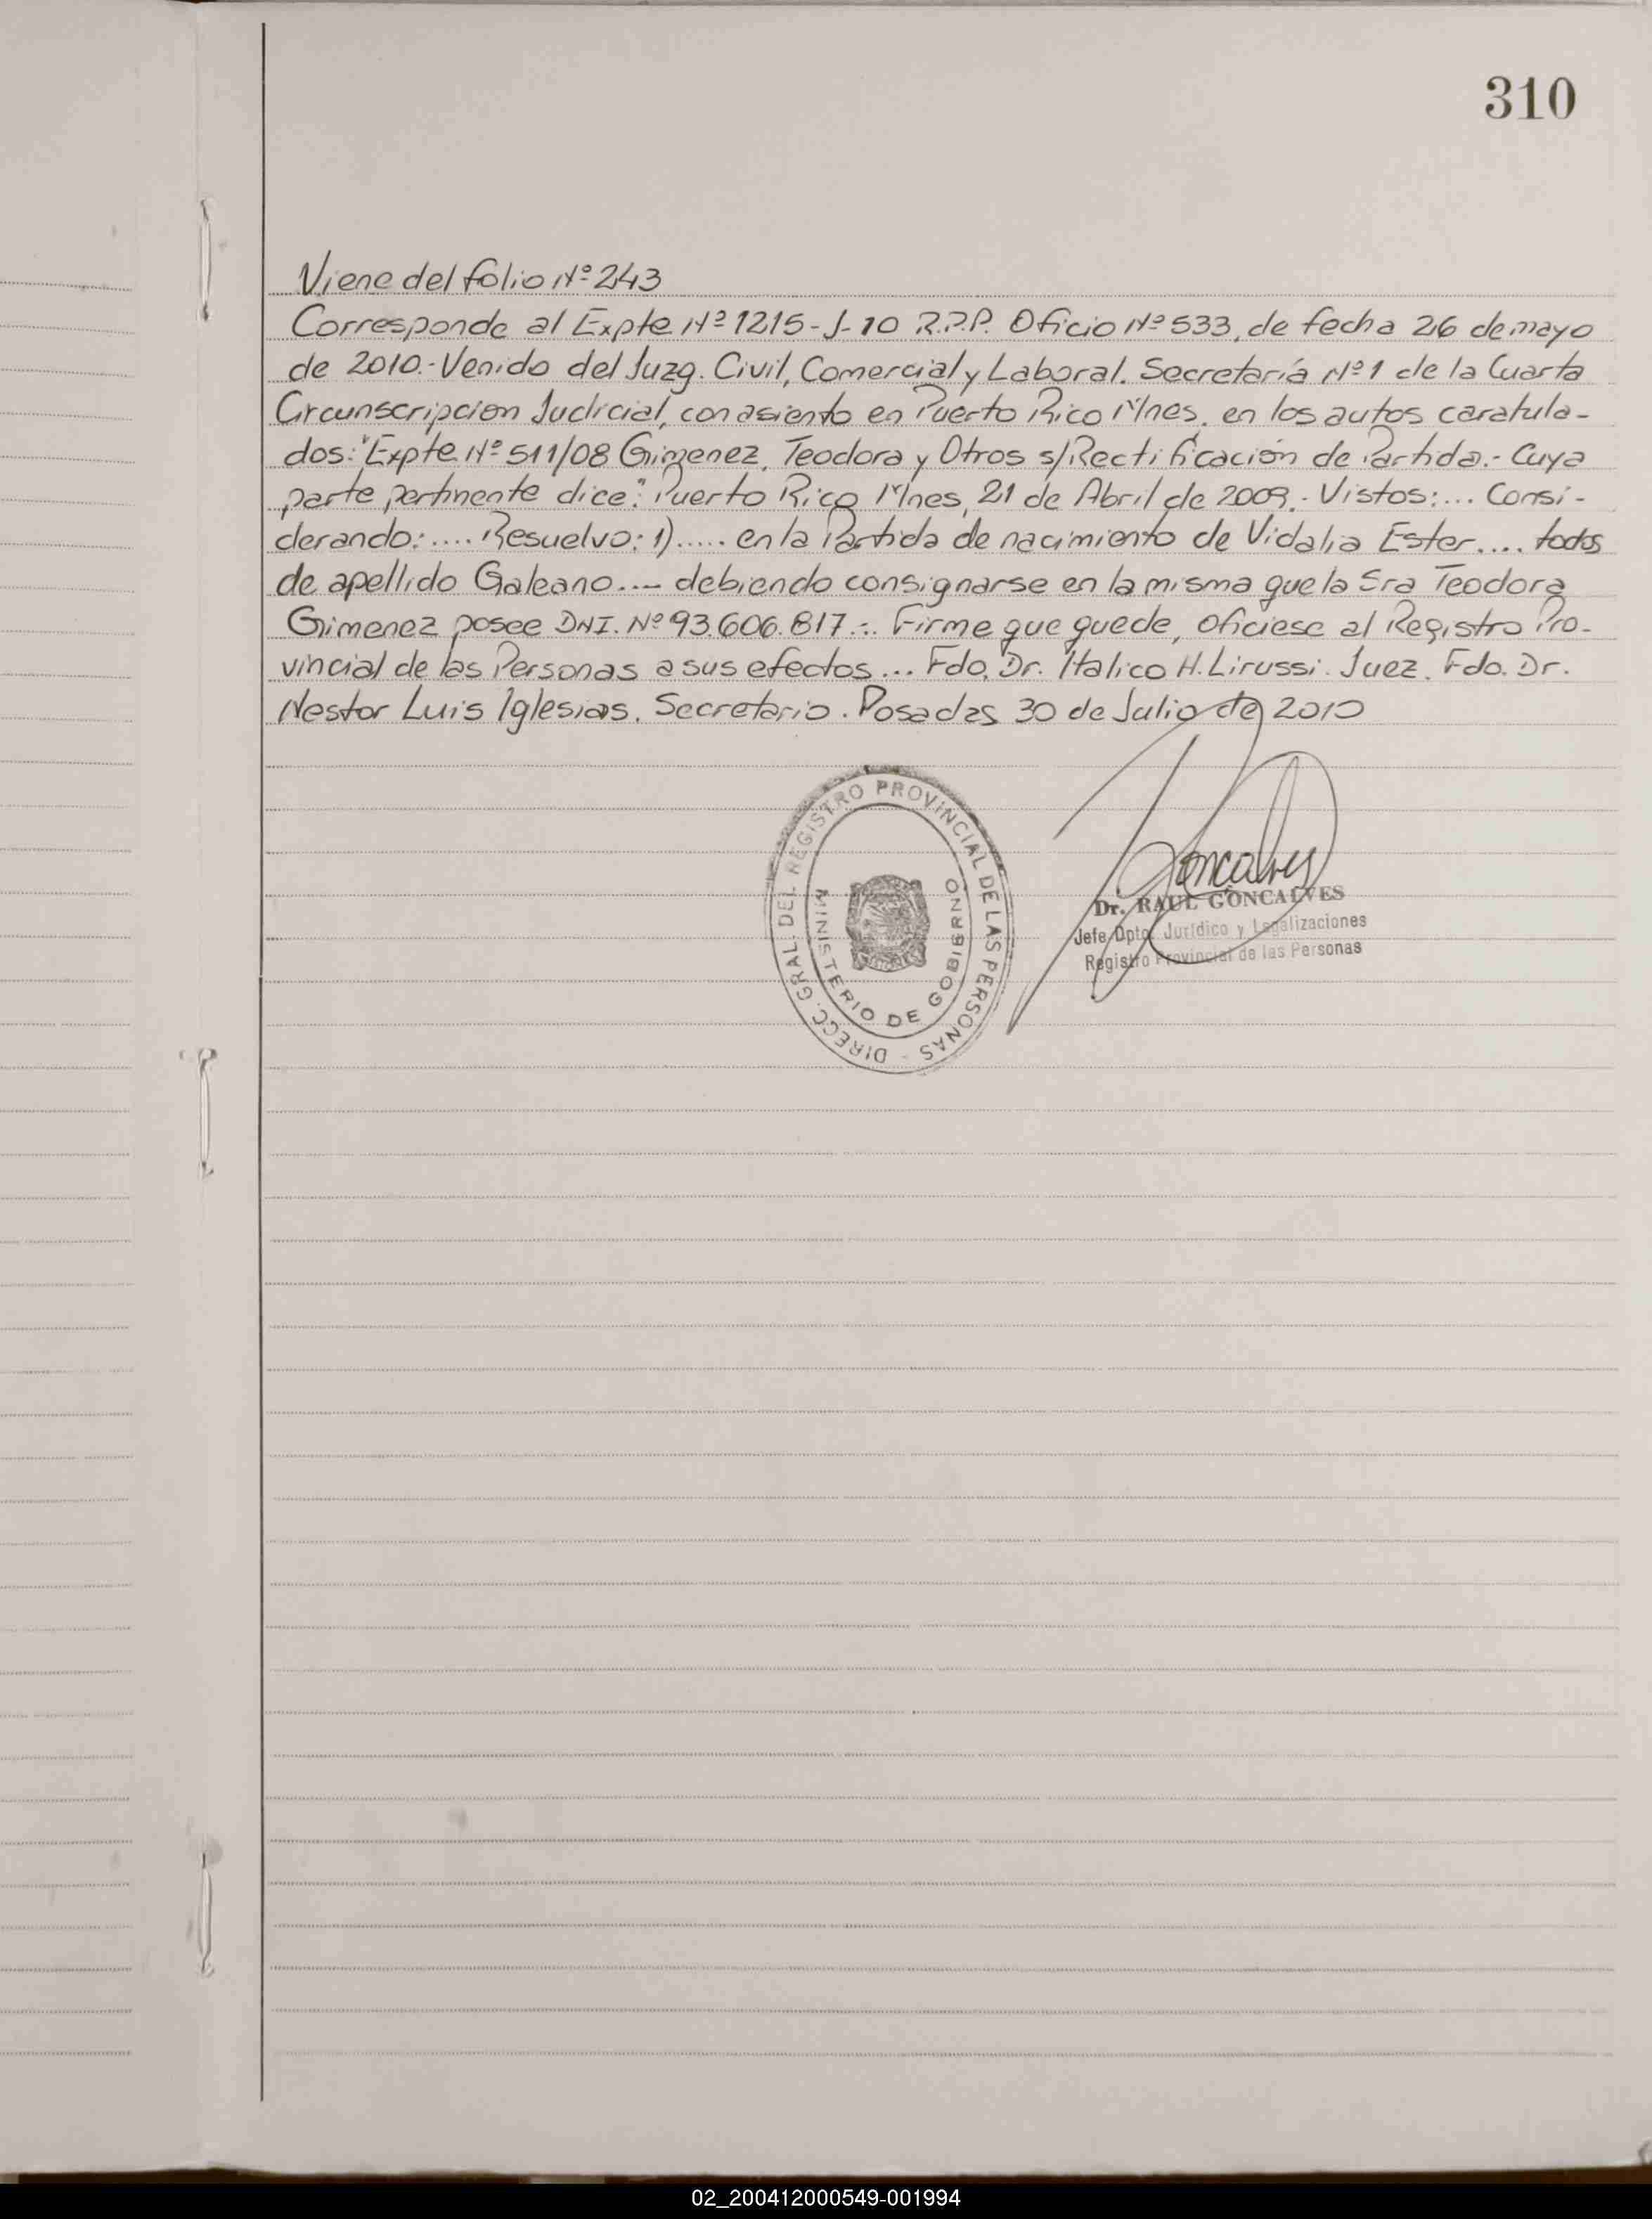 310
Viene del folio Nº 243
Corresponde al Expte Nº 1215-J-10 R.P.P. Oficio Nº 533, de fecha 26 de mayo
de 2010.- Venido del Juzg. Civil, Comercial y Laboral. Secretaría Nº 1 de la Cuarta
Circunscripcion Judicial, con asiento en Puerto Rico Mnes. en los autos caratula-
dos: "Expte Nº 511/08 Gimenez, Teodora y Otros s/Rectificación de Partida.- Cuya
parte pertinente dice: "Puerto Rico, Mnes, 21 de Abril de 2009.- Vistos:... Consi-
derando:.... Resuelvo: 1)..... en la Partida de nacimiento de Vidalia Ester.... todos
de apellido Galeano...- debiendo consignarse en la misma que la Sra Teodora
Gimenez posee DNI. Nº 93.606.817.-. Firme que quede, oficiese al Registro Pro-
vincial de las Personas a sus efectos... Fdo. Dr. Italico H. Lirussi. Juez. Fdo. Dr.
Nestor Luis Iglesias. Secretario. Posadas 30 de Julio de 2010
DIRECC. GRAL. DEL REGISTRO PROVINCIAL DE LAS PERSONAS -
MINISTERIO DE GOBIERNO
Goncalves
Dr. RAUL GONCALVES
Jefe Dpto. Jurídico y Legalizaciones
Registro Provincial de las Personas
02_200412000549-001994